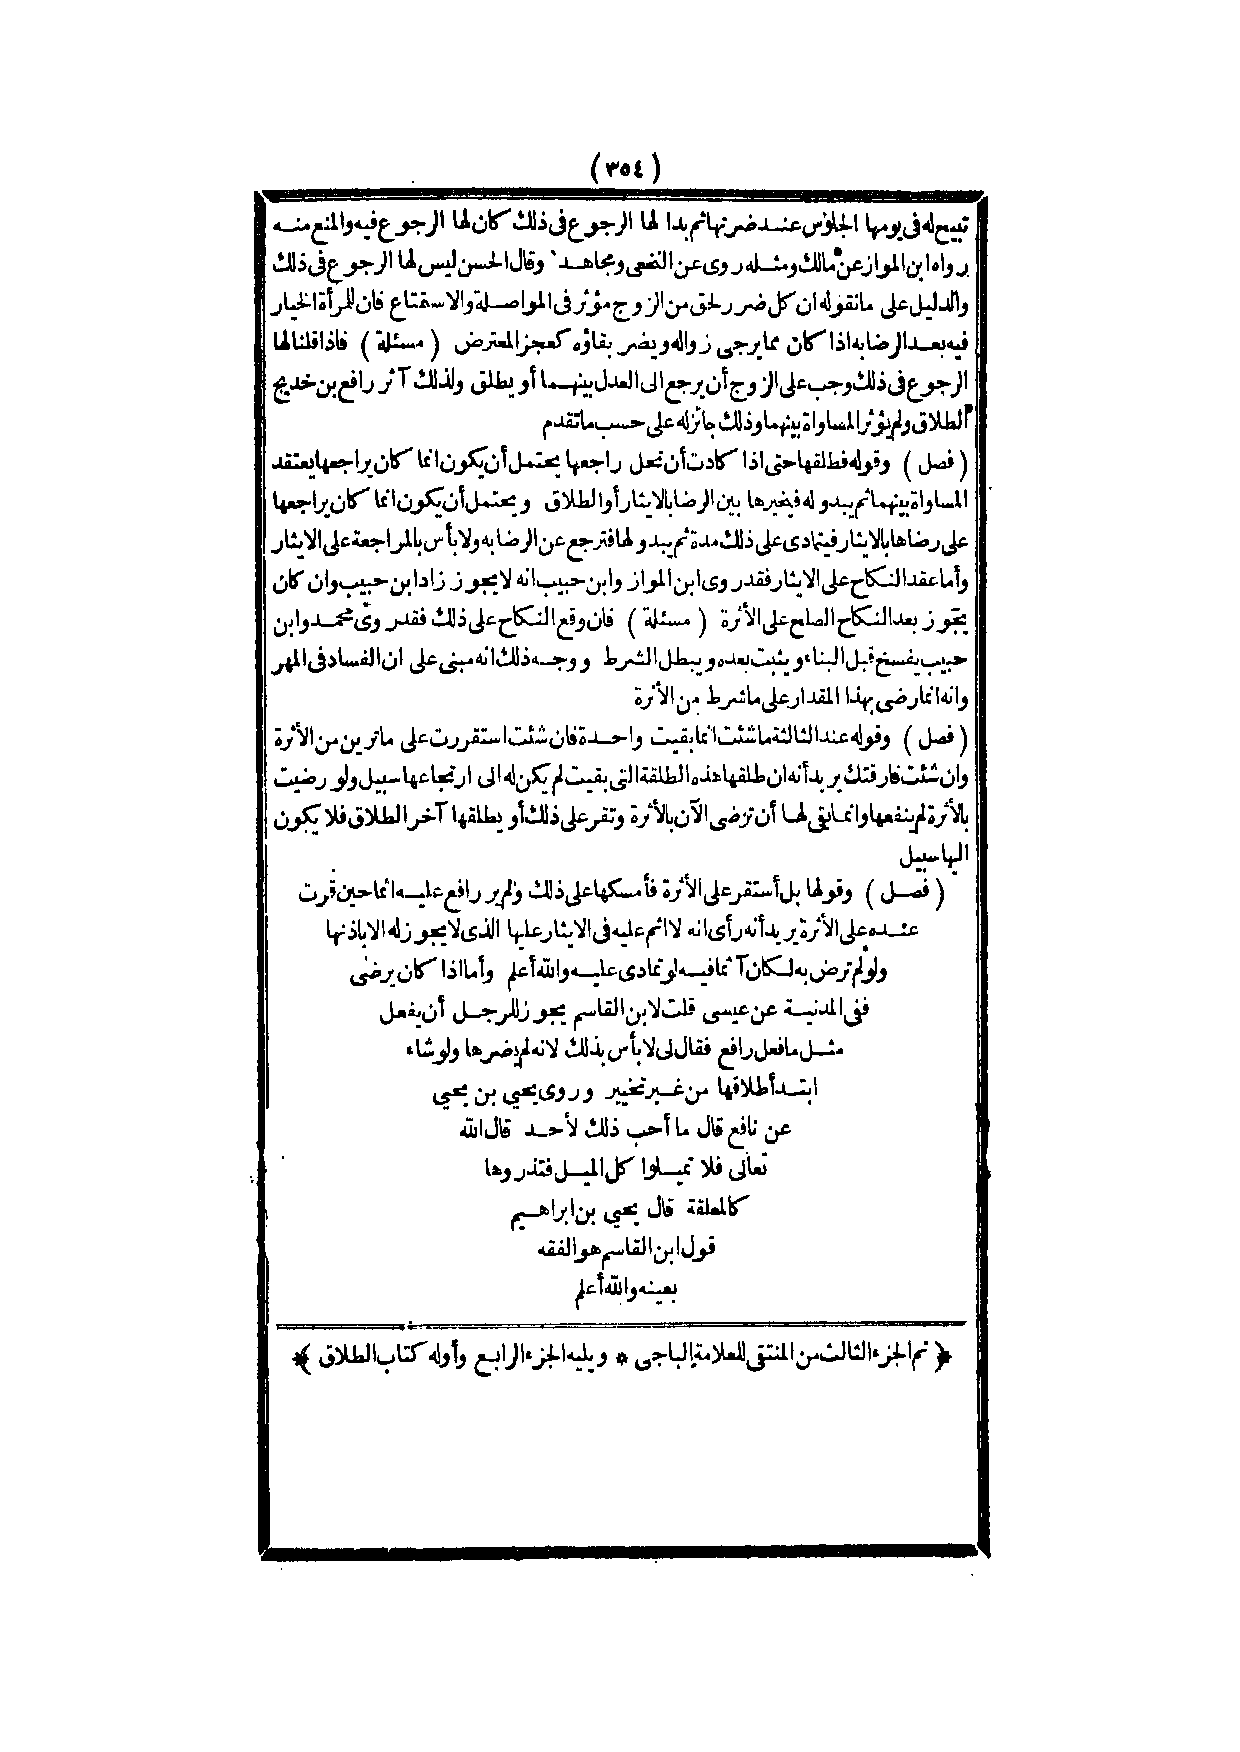 (٣٥٤)
تبيح له فى يومها الجلوس عند ضرتها ثم بدا لها الرجوع فى ذلك كان لها الرجوع فيه والمنع منه
رواه ابن المواز عن مالك ومثله روى عن النخعى ومجاهد وقال الحسن ليس لها الرجوع فى ذلك
والدليل على ما نقوله ان كل ضرر لحق من الزوج مؤثر فى المواصلة والاستمتاع فان للمرأة الخيار
فيه بعد الرضا به اذا كان مما يرجى زواله ويضر بقاؤه كعجز المعترض (مسئلة) فاذا قلنا لها
الرجوع فى ذلك وجب على الزوج أن يرجع الى العدل بينهما أو يطلق ولذلك آثر رافع بن خديج
الطلاق ولم يؤثر المساواة بينهما وذلك جائز له على حسب ما تقدم
(فصل) وقوله فطلقها حتى اذا كادت أن تحل راجعها يحتمل أن يكون انما كان يراجعها يعتقد
المساواة بينهما ثم يبدو له فيخيرها بين الرضا بالايثار أو الطلاق ويحتمل أن يكون انما كان يراجعها
على رضاها بالايثار فيتمادى على ذلك مدة ثم يبدو لها فترجع عن الرضا به ولا بأس بالمراجعة على الايثار
وأما عقد النكاح على الايثار فقد روى ابن المواز وابن حبيب انه لا يجوز زاد ابن حبيب وان كان
يجوز بعد النكاح الصلح على الأثرة (مسئلة) فان وقع النكاح على ذلك فقد روى محمد وابن
حبيب يفسخ قبل البناء ويثبت بعده ويبطل الشرط ووجه ذلك انه مبنى على ان الفساد فى المهر
وانه انما رضى بهذا المقدار على ما شرط من الأثرة
(فصل) وقوله عند الثالثة ما شئت انما بقيت واحدة فان شئت استقررت على ماترين من الأثرة
وان شئت فارقتك يريد أنه ان طلقها هذه الطلقة التى بقيت لم يكن له الى ارتجاعها سبيل ولو رضيت
بالأثرة لم ينفعها وانما بقى لها أن ترضى الآن بالأثرة وتقر على ذلك أو يطلقها آخر الطلاق فلا يكون
اليها سبيل
(فصل) وقولها بل أستقر على الأثرة فأمسكها على ذلك ولم ير رافع عليه اثما حين قرت
عنده على الأثرة يريد أنه رأى انه لا اثم عليه فى الايثار عليها الذى لا يجوز له الا باذنها
ولو لم ترض به لكان آثما فيه لو تمادى عليه والله أعلم وأما اذا كان يرضى
ففى المدنية عن عيسى قلت لابن القاسم يجوز للرجل أن يفعل
مثل ما فعل رافع فقال لى لا بأس بذلك لانه لم يضرها ولو شاء
ابتدأ طلاقها من غير تخيير وروى يحيى بن يحيى
عن نافع قال ما أحب ذلك لأحد قال الله
تعالى فلا تميلوا كل الميل فتذروها
كالمعلقة قال يحيى بن ابراهيم
قول ابن القاسم هو الفقه
بعينه والله أعلم
﴿ تم الجزء الثالث من المنتقى للعلامة الباجى * ويليه الجزء الرابع وأوله كتاب الطلاق ﴾